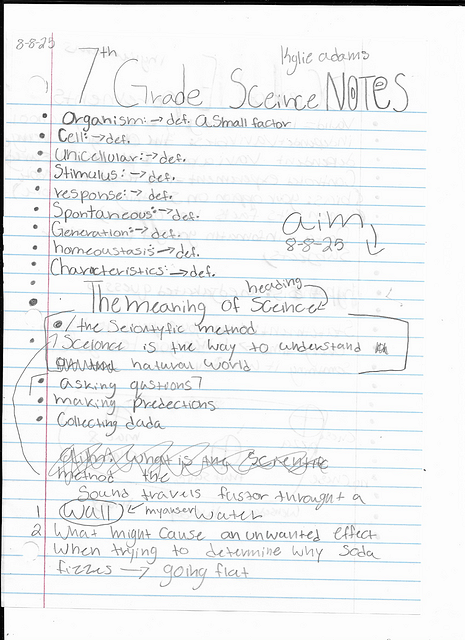 8-8-25
Kylie adams
7th Grade Sceince NOTES
Organism:→def. a small factor
Cell:→def.
Unicellular:→def.
Stimulus:→def.
response:→def.
Spontaneous:→def.
Generation:→def.
homeoustasis→def.
Characteristics:→def.
aim
8-8-25
heading
The meaning of Sceince
/the Seiontyfic method
Sceience is the way to understand
natural world
asking qastions?
making predections
Collecting dada
aim: what is the Scientific
method the
Sound travels fastor throught a
1 Wall ← my anser water
2 What might cause an unwanted effect
when trying to determine why Soda
fizzes → going flat